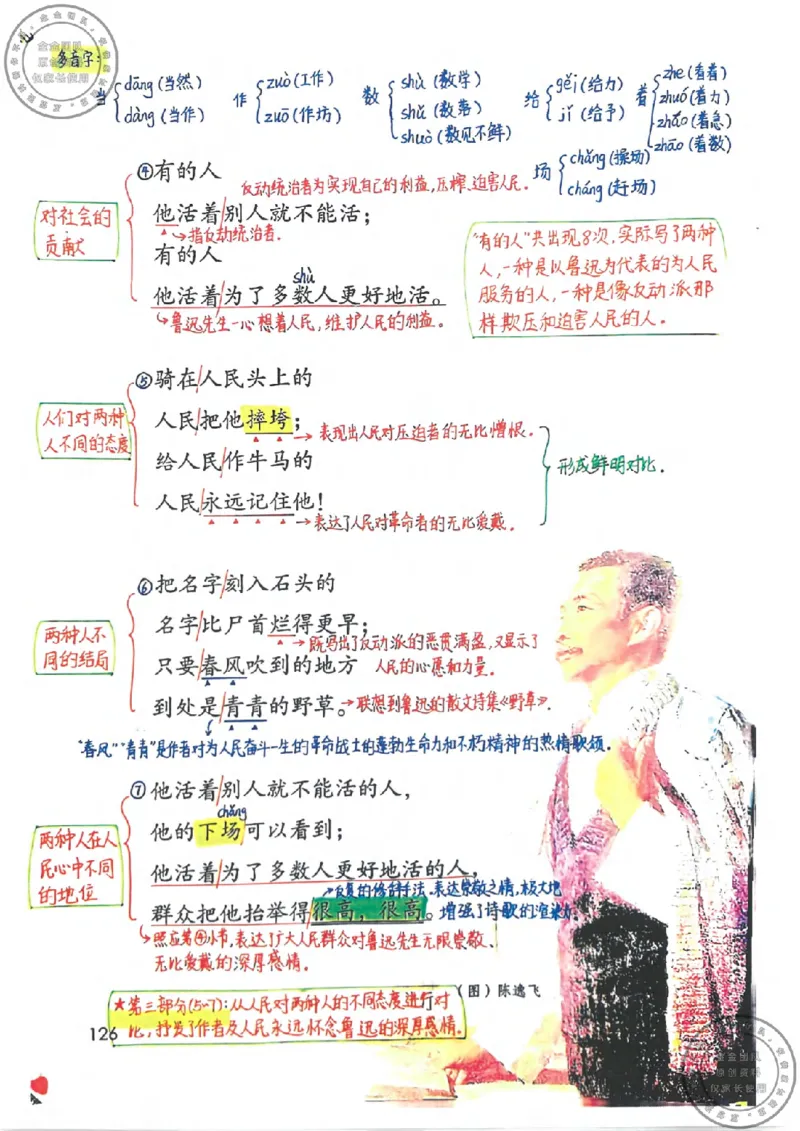 多音字:
当 dāng (当然) dàng (当作)
作 zuò (工作) zuō (作坊)
数 shù (数学) shǔ (数落) shuò (数见不鲜)
给 gěi (给力) jǐ (给予)
着 zhe (看着) zhuó (着力) zháo (着急) zhāo (着数)
场 chǎng (操场) cháng (赶场)
④有的人
反动统治者为实现自己的利益,压榨、迫害人民。
对社会的
贡献
他活着/别人就不能活;
指反动统治者。
有的人
shù
他活着/为了多数人更好地活。
鲁迅先生一心想着人民,维护人民的利益。
“有的人”共出现8次,实际写了两种
人,一种是以鲁迅为代表的为人民
服务的人,一种是像反动派那
样欺压和迫害人民的人。
⑤骑在/人民头上的
人们对两种
人不同的态度
人民/把他摔垮;
表现出人民对压迫者的无比憎恨。
给人民/作牛马的
形成鲜明对比.
人民/永远记住他!
表达了人民对革命者的无比爱戴.
⑥把名字/刻入石头的
两种人不
同的结局
名字/比尸首烂得更早;
既写出了反动派的恶贯满盈,又显示了
人民的心愿和力量。
只要/春风吹到的地方
到处是/青青的野草。
联想到鲁迅的散文诗集《野草》.
“春风”“青青”是作者对为人民奋斗一生的革命战士的蓬勃生命力和不朽精神的热情歌颂.
⑦他活着/别人就不能活的人,
chǎng
两种人在人
民心中不同
的地位
他的下场/可以看到;
他活着/为了多数人更好地活的人,
反复的修辞手法.表达崇敬之情,极大地
增强了诗歌的渲染力.
群众把他抬举得/很高,很高。
照应第④小节,表达了广大人民群众对鲁迅先生无限崇敬、
无比爱戴的深厚感情。
(图)陈逸飞
★第三部分(5-7):从人民对两种人的不同态度进行对
比,抒发了作者及人民永远怀念鲁迅的深厚感情.
126